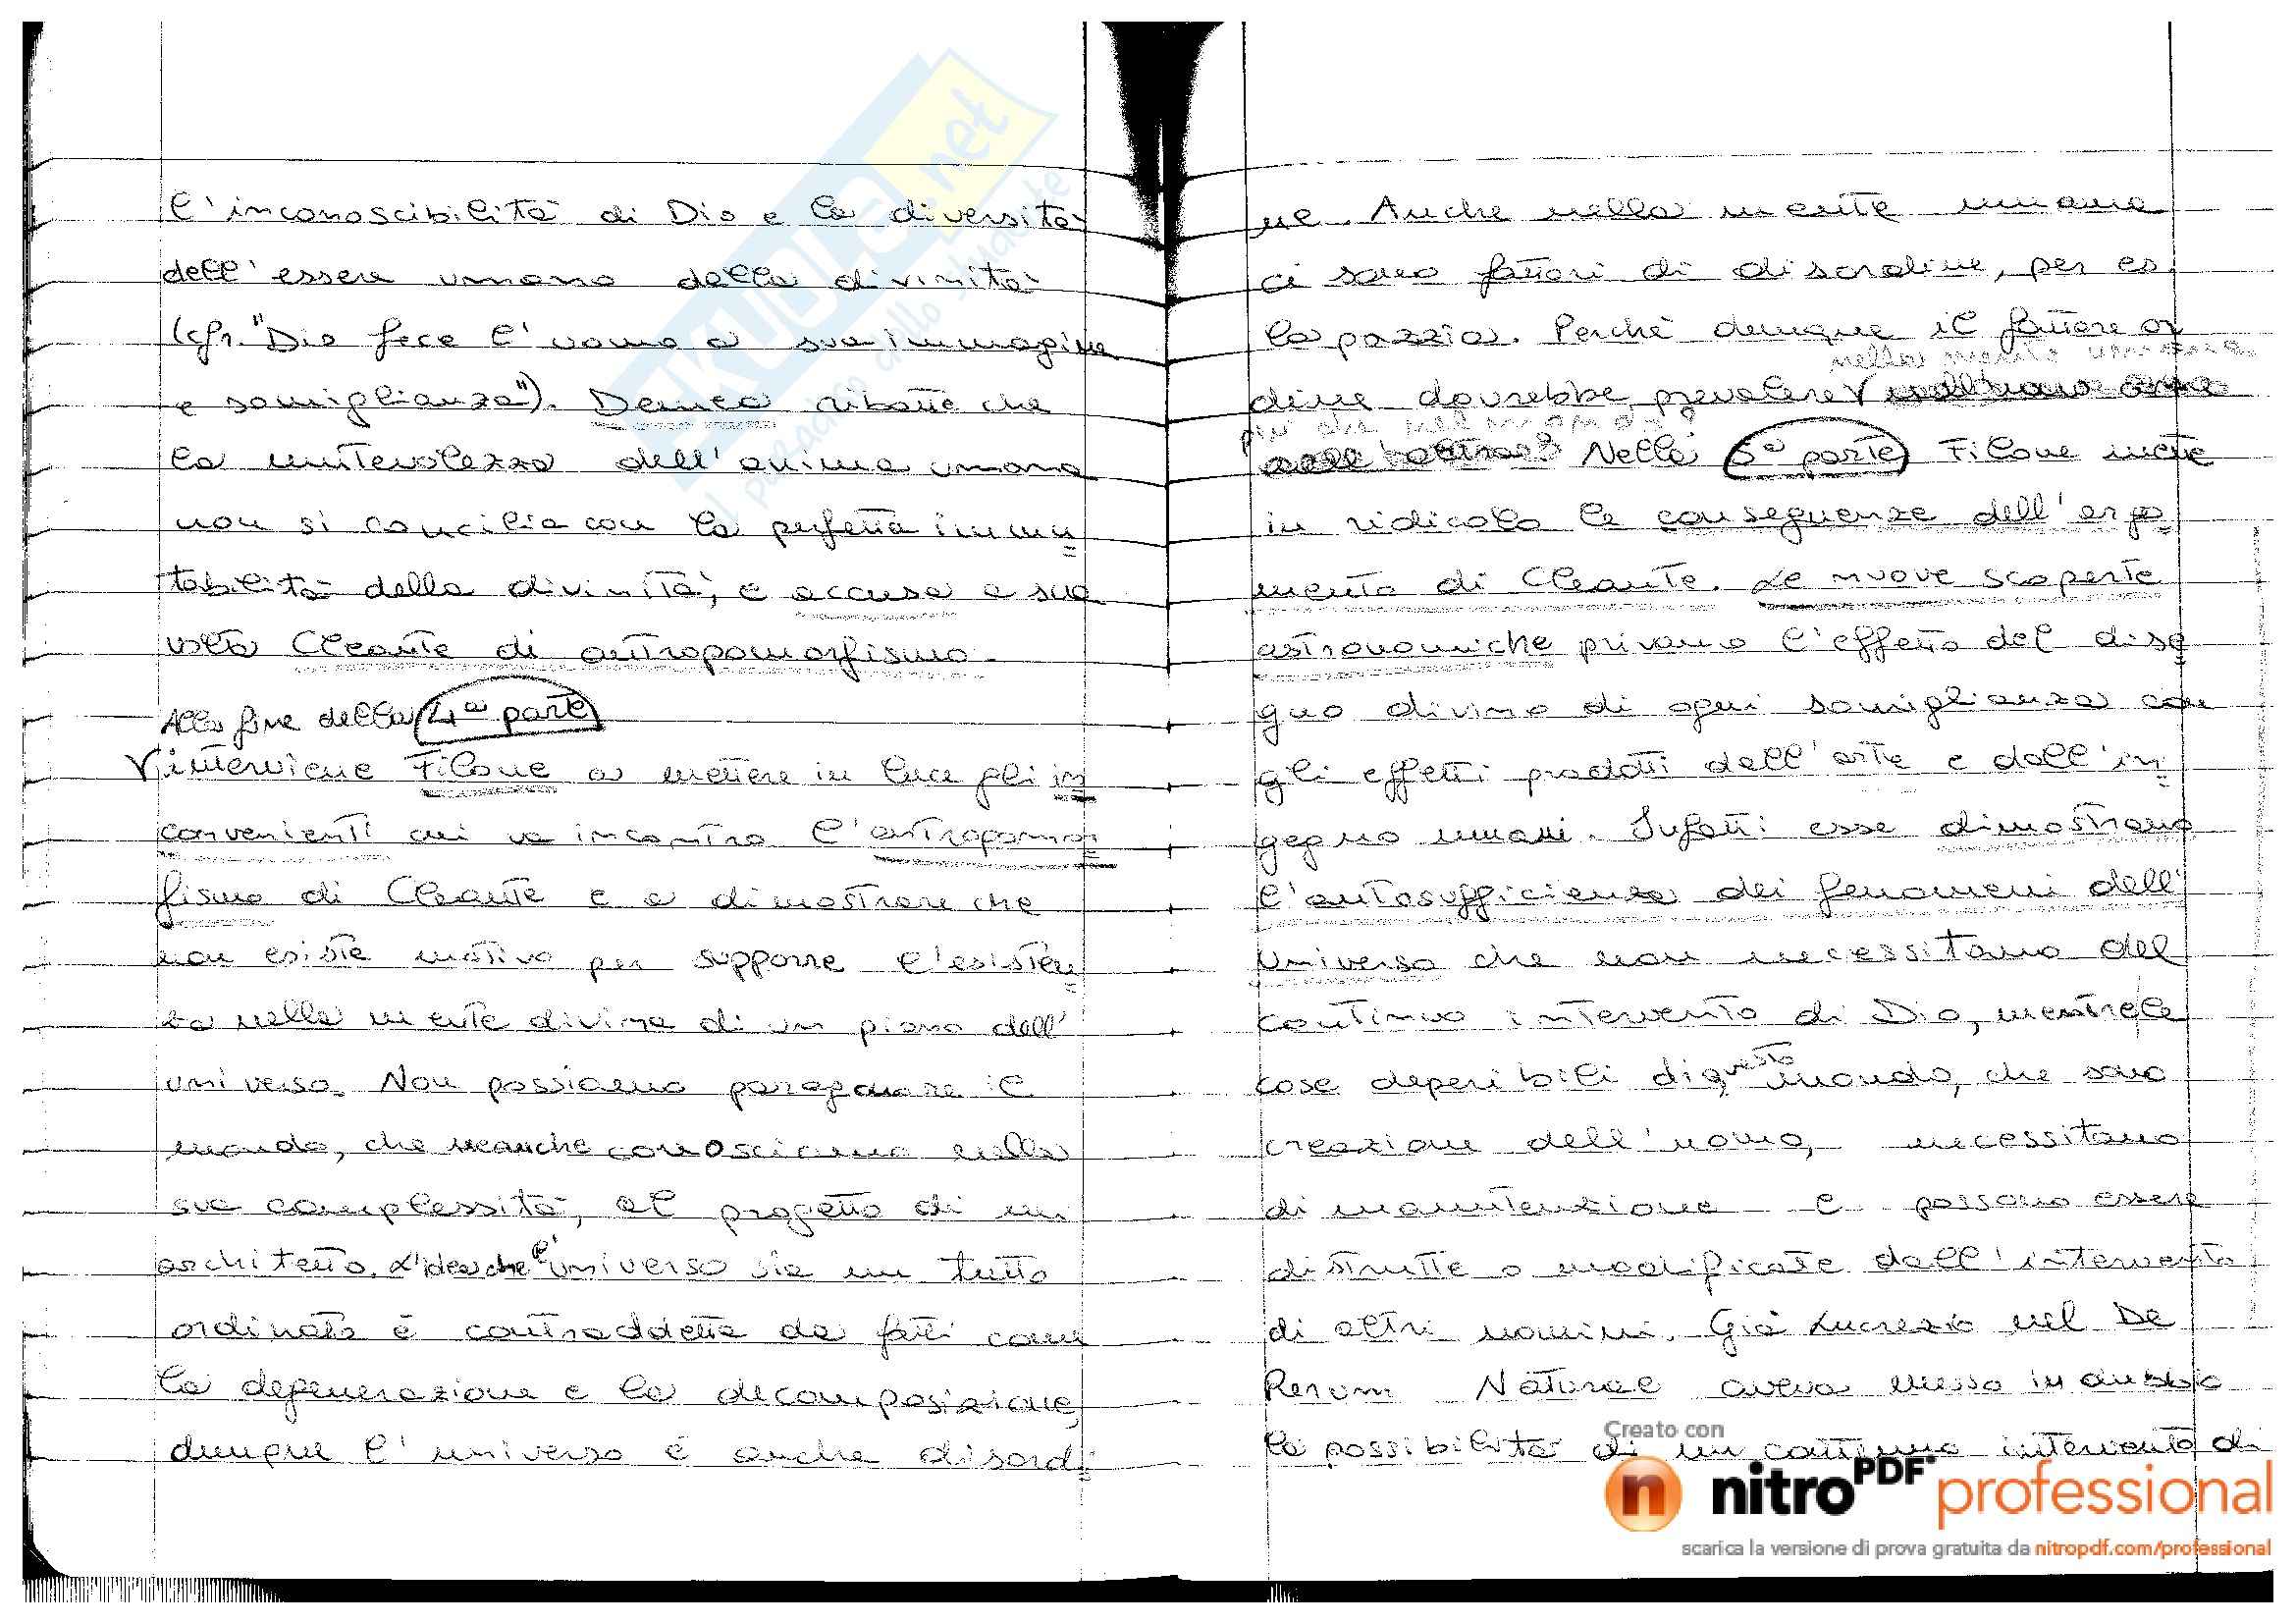 l'inconoscibilità di Dio e la diversità
dell'essere umano dalla divinità
(cfr. "Dio fece l'uomo a sua immagine
e somiglianza"). Demea ribatte che
la mutevolezza dell'anima umana
non si concilia con la perfetta immu=
tabilità della divinità, e accusa a sua
volta Cleante di antropomorfismo.
Alla fine della 4ª parte
V interviene Filone a mettere in luce gli in=
convenienti cui va incontro l'antropomor=
fismo di Cleante e a dimostrare che
non esiste motivo per supporre l'esisten=
za nella mente divina di un piano dell'
universo. Non possiamo paragonare il
mondo, che neanche conosciamo nella
sua complessità, al progetto di un
architetto. L'idea che l'universo sia un tutto
ordinato è contraddetta da fatti come
la degenerazione e la decomposizione,
dunque l'universo è anche disordi=
ne. Anche nella mente umana
ci sono fattori di disordine, per es.
la pazzia. Perché dunque il fattore or
nella mente umana
dine dovrebbe prevalere V
più che nel mondo?
Nella 5ª parte Filone mette
in ridicolo le conseguenze dell'argo=
mento di Cleante. Le nuove scoperte
astronomiche privano l'effetto del dise=
gno divino di ogni somiglianza con
gli effetti prodotti dall'arte e dall'in=
gegno umani. Infatti esse dimostrano
l'autosufficienza dei fenomeni dell'
universo che non necessitano del
continuo intervento di Dio, mentre le
cose deperibili di questo mondo, che sono
creazione dell'uomo, necessitano
di manutenzione e possono essere
distrutte o modificate dall'intervento
di altri uomini. Già Lucrezio nel De
Rerum Naturae aveva messo in dubbio
la possibilità di un continuo intervento di
AKUALA.net
il paradiso dello studente
Creato con
nitro PDF professional
scarica la versione di prova gratuita da nitropdf.com/professional